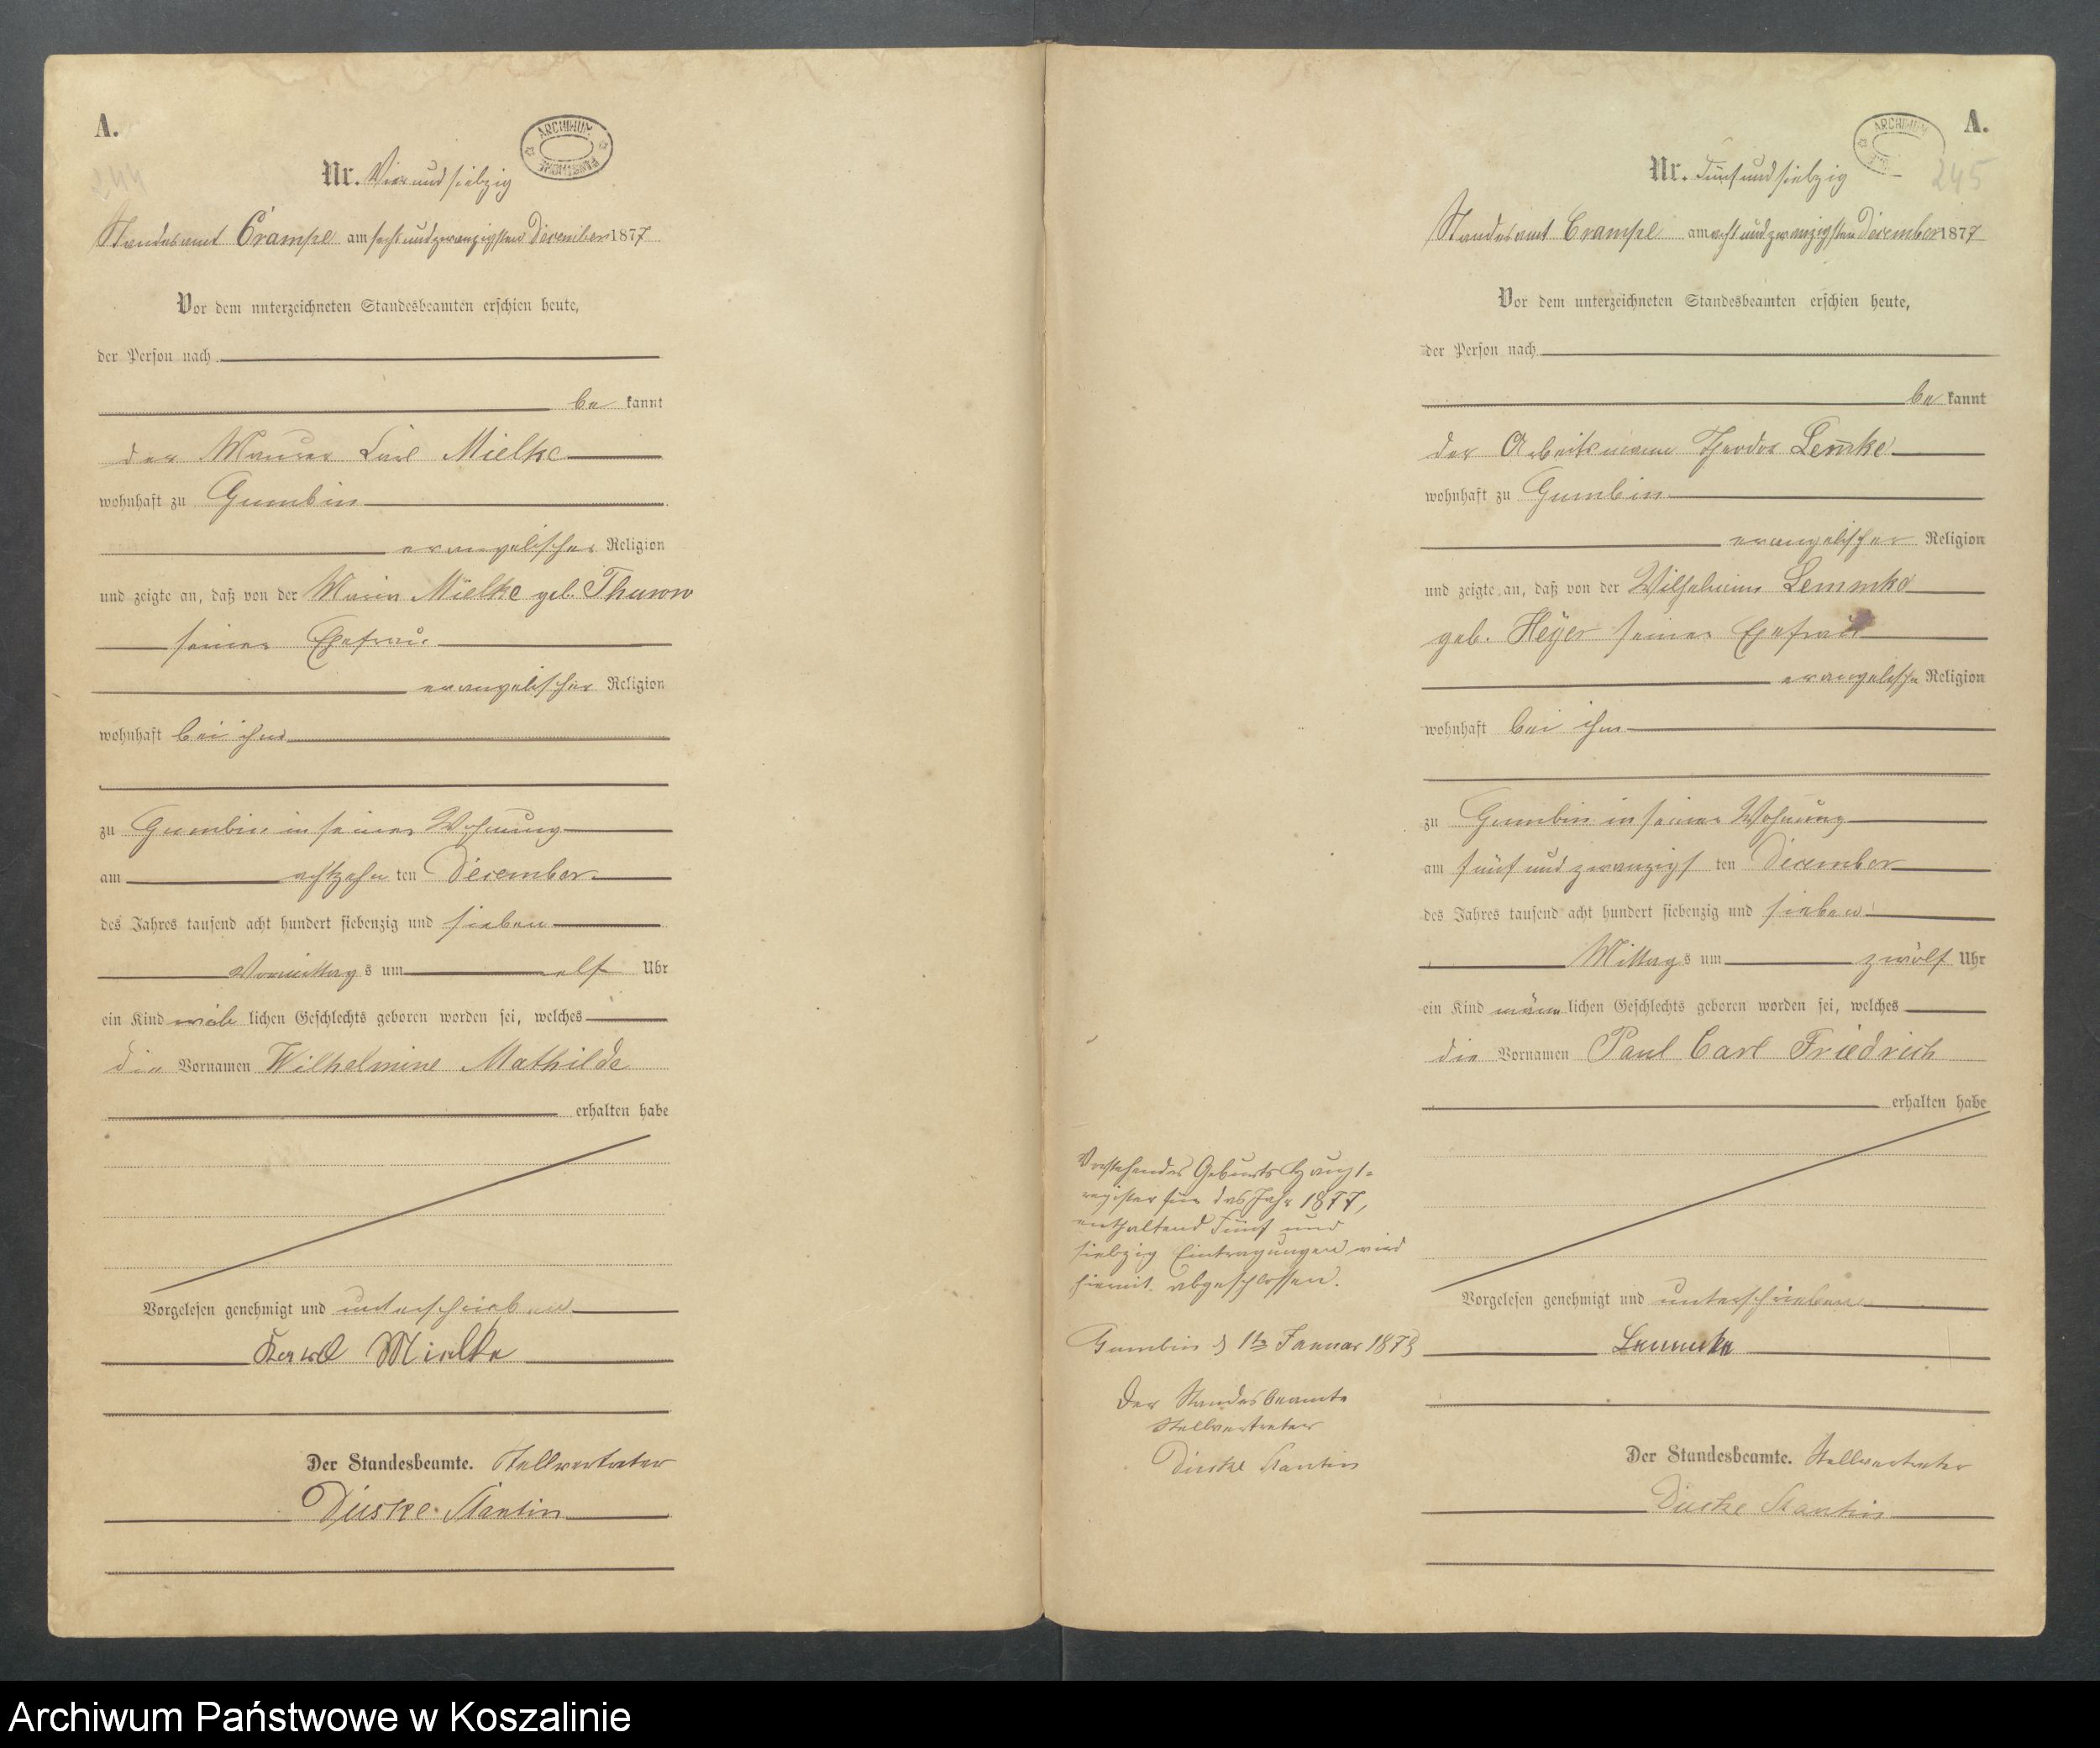 A.
244
ARCHIWUM PAŃSTWOWE
Nr. Vier und siebzig
Standesamt Crampe am sechs und zwanzigsten December 1877
Vor dem unterzeichneten Standesbeamten erschien heute,
der Person nach
be kannt
der Maurer Carl Mielke
wohnhaft zu Gumbin
evangelischer Religion
und zeigte an, daß von der Maria Mielke geb. Thurow
seiner Ehefrau
evangelischer Religion
wohnhaft bei ihm
zu Gumbin in seiner Wohnung
am achtzehn ten December
des Jahres tausend acht hundert siebenzig und sieben
Vormittags um elf Uhr
ein Kind weib lichen Geschlechts geboren worden sei, welches
die Vornamen Wilhelmine Mathilde
erhalten habe
Vorgelesen genehmigt und unterschrieben
Karl Mielke
Der Standesbeamte. Stellvertreter
Dieske Stantin
A.
245
ARCHIWUM
Nr. Fünf und siebzig
Standesamt Crampe am acht und zwanzigsten December 1877
Vor dem unterzeichneten Standesbeamten erschien heute,
der Person nach
be kannt
der Arbeitsmann Theodor Lemke
wohnhaft zu Gumbin
evangelischer Religion
und zeigte an, daß von der Wilhelmine Lemmke
geb. Heyer seiner Ehefrau
evangelische Religion
wohnhaft bei ihm
zu Gumbin in seiner Wohnung
am fünf und zwanzigs ten December
des Jahres tausend acht hundert siebenzig und sieben
Mittags um zwölf Uhr
ein Kind männ lichen Geschlechts geboren worden sei, welches
die Vornamen Paul Carl Friedrich
erhalten habe
Vorgelesen genehmigt und unterschrieben
Lemmke
Der Standesbeamte. Stellvertreter
Dieske Stantin
Vorstehendes Geburts Haupt-
register für das Jahr 1877,
enthaltend Fünf und
siebzig Eintragungen wird
hiermit abgeschlossen.
Gumbin d 1ten Januar 1878
Der Standesbeamte
Stellvertreter
Dieske Stantin
Archiwum Państwowe w Koszalinie